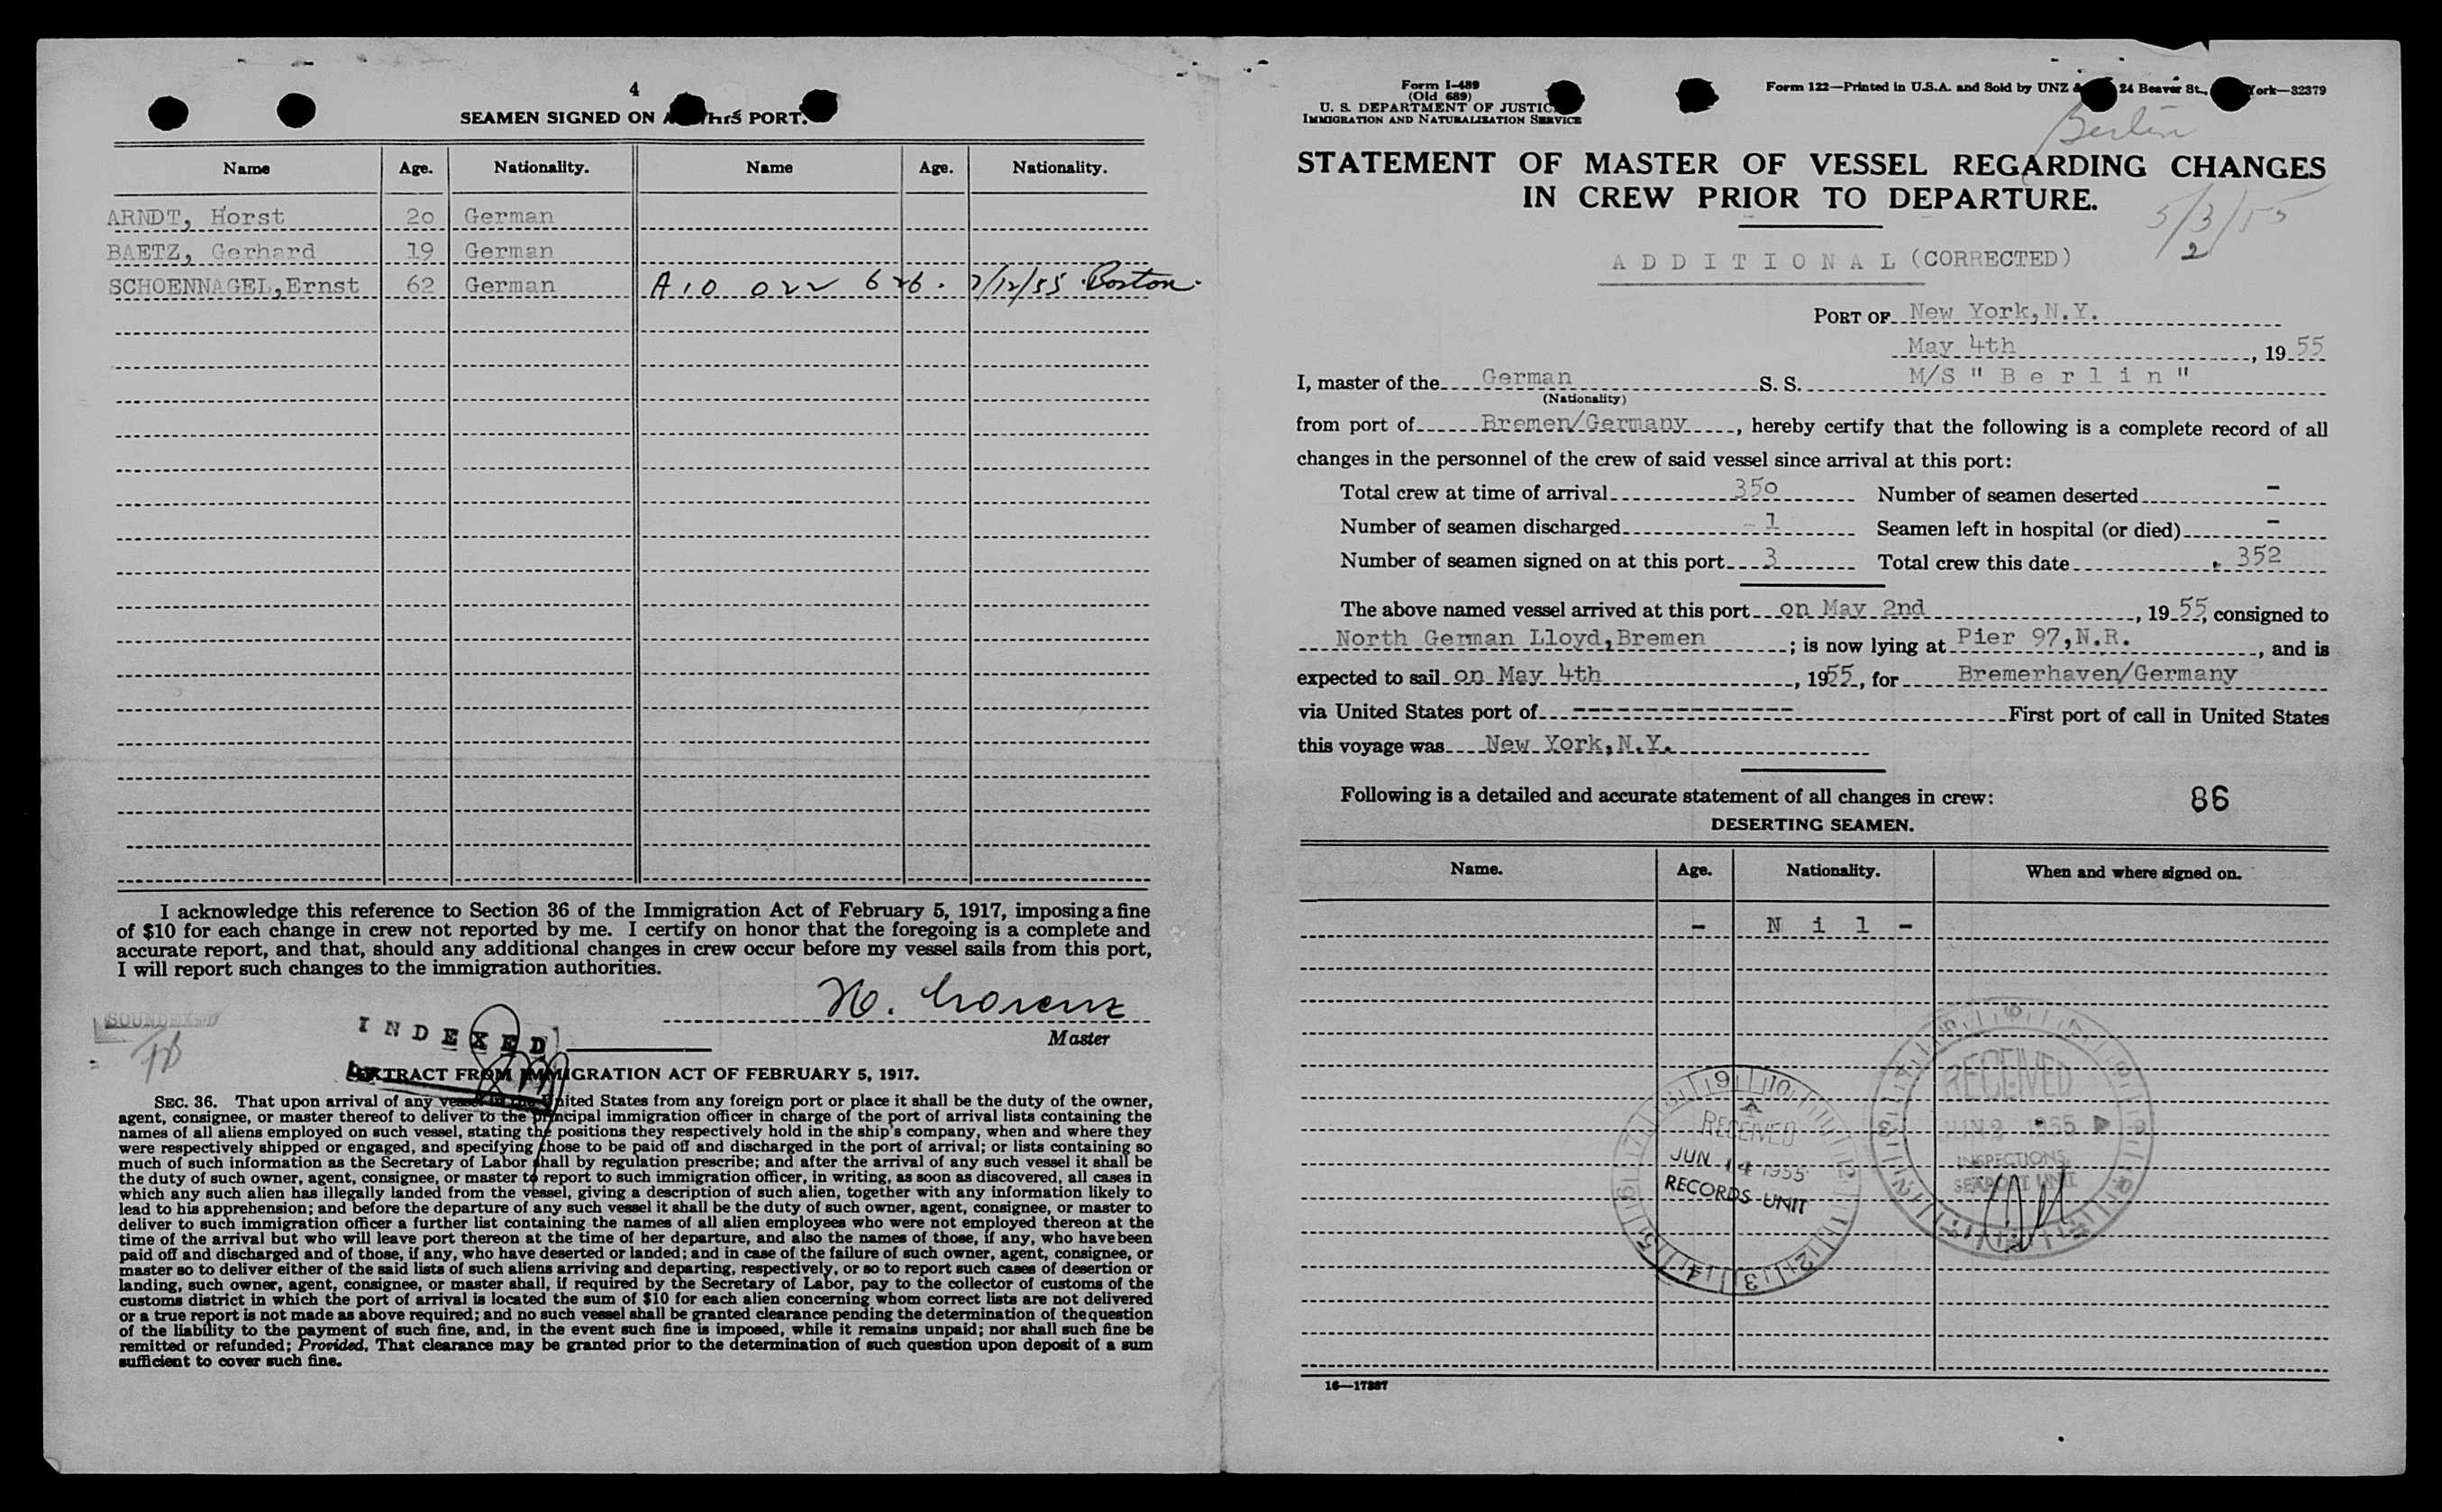 4
SEAMEN SIGNED ON PORT.
Name Age. Nationality. Name Age. Nationality.
ARNDT, Horst 20 German
BAETZ, Gerhard 19 German
SCHOENNAGEL,Ernst 62 German A10 022 626. 7/12/55 Boston.
I acknowledge this reference to Section 36 of the Immigration Act of February 5, 1917, imposing a fine
of $10 for each change in crew not reported by me. I certify on honor that the foregoing is a complete and
accurate report, and that, should any additional changes in crew occur before my vessel sails from this port,
I will report such changes to the immigration authorities.
H. Lorenz
Master
SOUNDEXED
INDEXED
EXTRACT FROM IMMIGRATION ACT OF FEBRUARY 5, 1917.
SEC. 36. That upon arrival of any vessel in the United States from any foreign port or place it shall be the duty of the owner,
agent, consignee, or master thereof to deliver to the principal immigration officer in charge of the port of arrival lists containing the
names of all aliens employed on such vessel, stating the positions they respectively hold in the ship's company, when and where they
were respectively shipped or engaged, and specifying those to be paid off and discharged in the port of arrival; or lists containing so
much of such information as the Secretary of Labor shall by regulation prescribe; and after the arrival of any such vessel it shall be
the duty of such owner, agent, consignee, or master to report to such immigration officer, in writing, as soon as discovered, all cases in
which any such alien has illegally landed from the vessel, giving a description of such alien, together with any information likely to
lead to his apprehension; and before the departure of any such vessel it shall be the duty of such owner, agent, consignee, or master to
deliver to such immigration officer a further list containing the names of all alien employees who were not employed thereon at the
time of the arrival but who will leave port thereon at the time of her departure, and also the names of those, if any, who have been
paid off and discharged and of those, if any, who have deserted or landed; and in case of the failure of such owner, agent, consignee, or
master so to deliver either of the said lists of such aliens arriving and departing, respectively, or so to report such cases of desertion or
landing, such owner, agent, consignee, or master shall, if required by the Secretary of Labor, pay to the collector of customs of the
customs district in which the port of arrival is located the sum of $10 for each alien concerning whom correct lists are not delivered
or a true report is not made as above required; and no such vessel shall be granted clearance pending the determination of the question
of the liability to the payment of such fine, and, in the event such fine is imposed, while it remains unpaid; nor shall such fine be
remitted or refunded; Provided, That clearance may be granted prior to the determination of such question upon deposit of a sum
sufficient to cover such fine.
Form I-489
(Old 689)
U. S. DEPARTMENT OF JUSTICE
IMMIGRATION AND NATURALIZATION SERVICE
Form 122—Printed in U.S.A. and Sold by UNZ & 24 Beaver St., York—32379
Berlin
STATEMENT OF MASTER OF VESSEL REGARDING CHANGES
IN CREW PRIOR TO DEPARTURE.
5/3/55
2
ADDITIONAL (CORRECTED)
PORT OF New York,N.Y.
May 4th, 19 55
I, master of the German S. S. M/S "Berlin"
(Nationality)
from port of Bremen/Germany, hereby certify that the following is a complete record of all
changes in the personnel of the crew of said vessel since arrival at this port:
Total crew at time of arrival 350 Number of seamen deserted -
Number of seamen discharged 1 Seamen left in hospital (or died) -
Number of seamen signed on at this port 3 Total crew this date 352
The above named vessel arrived at this port on May 2nd, 19 55, consigned to
North German Lloyd,Bremen; is now lying at Pier 97,N.R., and is
expected to sail on May 4th, 1955, for Bremerhaven/Germany
via United States port of ---------------- First port of call in United States
this voyage was New York,N.Y.
Following is a detailed and accurate statement of all changes in crew: 86
DESERTING SEAMEN.
Name. Age. Nationality. When and where signed on.
- Nil -
RECEIVED
JUN 14 1955
RECORDS UNIT
RECEIVED
JUN 2 1955
INSPECTIONS
SEAPORT UNIT
16—17387